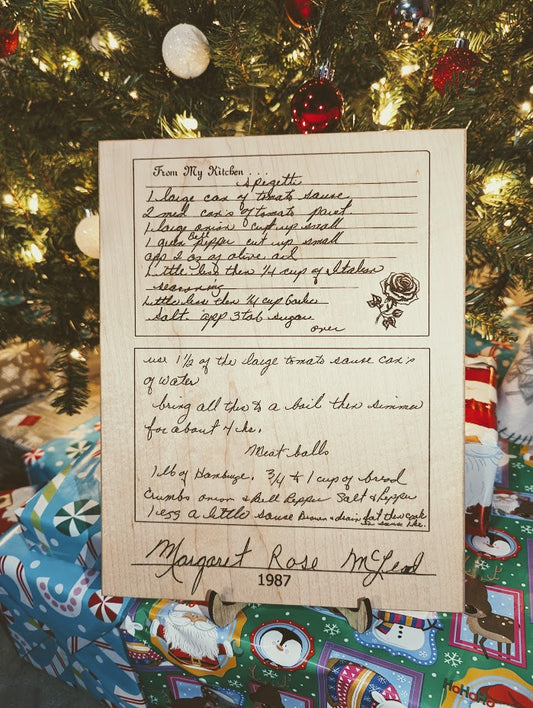 From My Kitchen . . .
Spegetti
1 large can of tomato sauce
2 med can's of tomato paist.
1 large onion cutt up small
1 green Bell Pepper cut up small
app 2 oz of olive oil
little less then 1/4 cup of Italian
seasoning
little less then 1/4 cup Garlic
salt. app 3 tab sugar
over
use 1 1/2 of the large tomato sauce can's
of water
bring all this to a boil then simmer
for about 4 hr.
Meat balls
1 lb of Hamburge. 3/4 to 1 cup of bread
Crumbs onion & Bell Pepper Salt & Pepper
1 egg a little sause Brown & drain fat then cook
in sauce 1 hr.
Margaret Rose McLeod
1987
HoHoHo